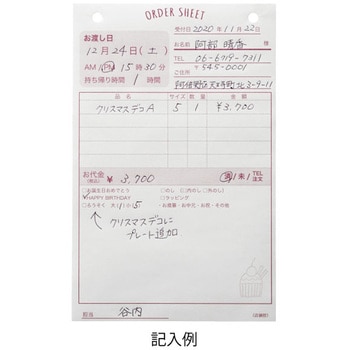 ORDER SHEET
お渡し日
受付日 2020年11月22日
12月24日(土)
お名前 阿部 晴香 様
AM PM 15時30分
TEL 06-6719-7311
持ち帰り時間 1 時間
ご住所 〒545-0001
阿倍野区天王寺町北3-9-11
品名 サイズ 数量 金額
クリスマスデコA 5 1 ¥3,700
お代金 (税込) ¥ 3,700
済 / 未 / TEL注文
□お誕生日おめでとう □のし (□内のし □外のし)
HAPPY BIRTHDAY □ラッピング
□ろうそく 大(1) 小(5)
クリスマスデコに
プレート追加
担当 谷内
(店舗控)
記入例